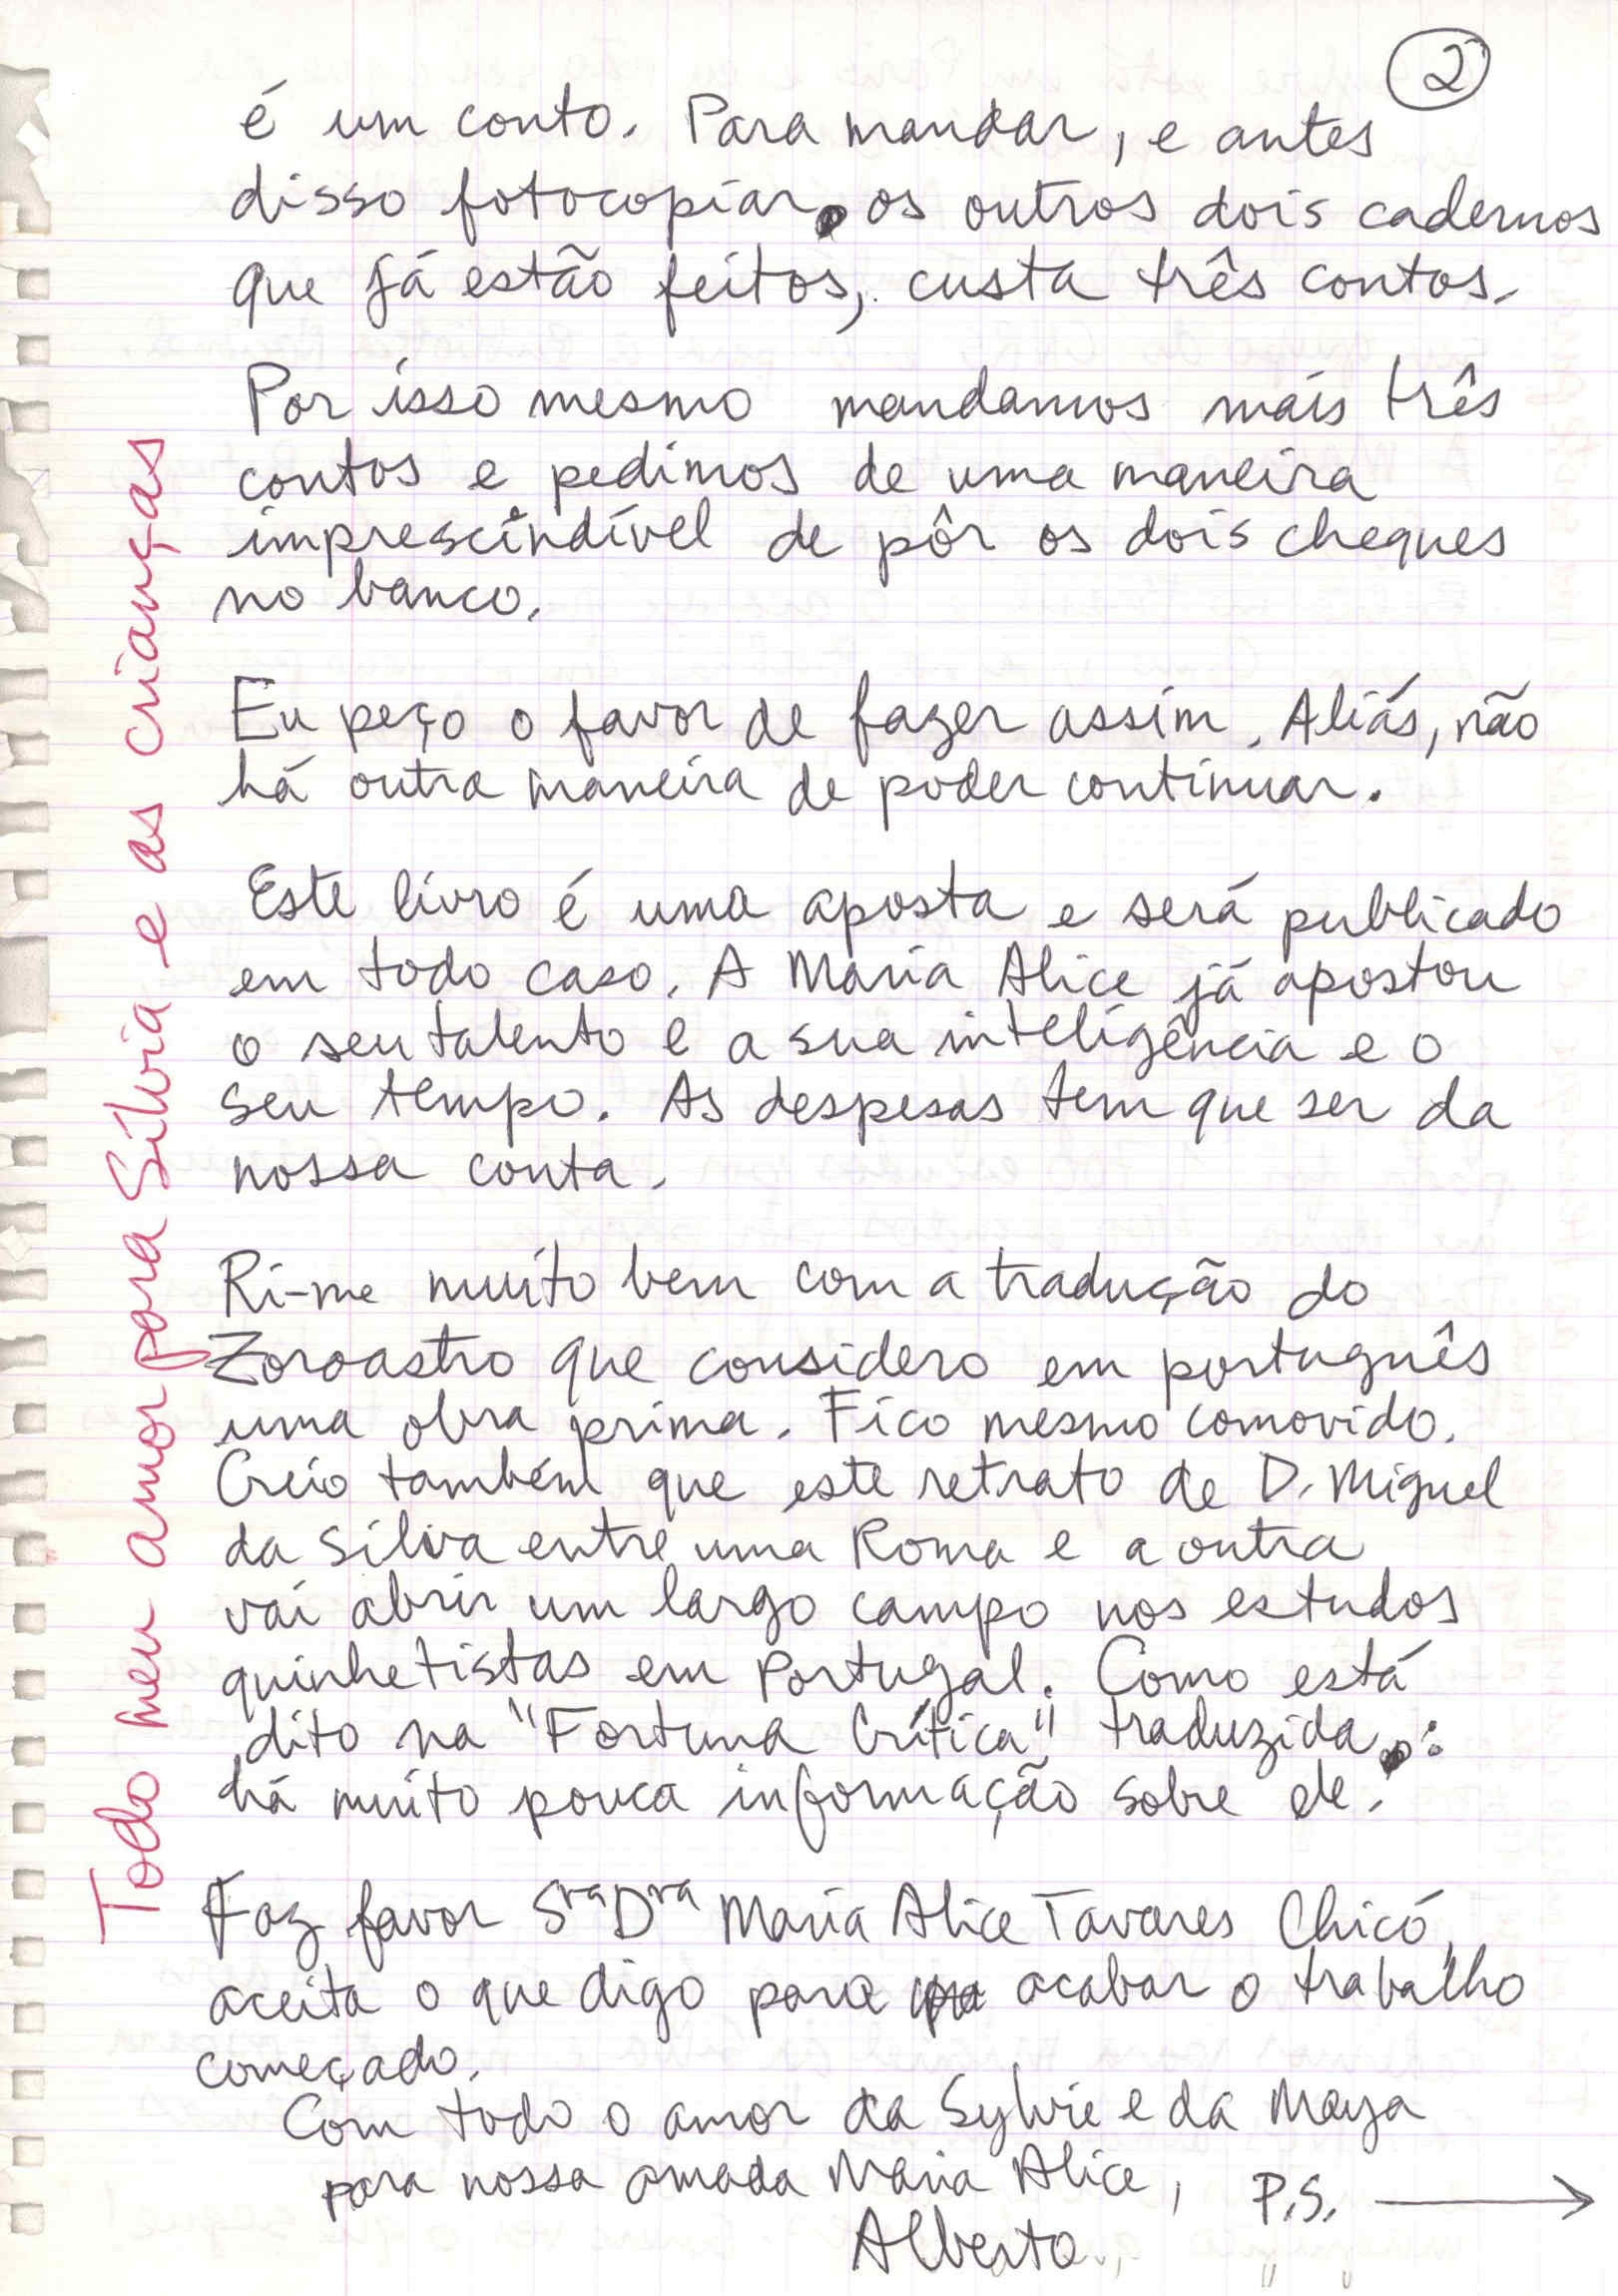 2
é um conto. Para mandar, e antes
disso fotocopiar os outros dois cadernos
que já estão feitos, custa três contos.
Por isso mesmo mandamos mais três
contos e pedimos de uma maneira
imprescindível de pôr os dois cheques
no banco.
Eu peço o favor de fazer assim. Aliás, não
há outra maneira de poder continuar.
Este livro é uma aposta e será publicado
em todo caso. A Maria Alice já apostou
o seu talento e a sua inteligência e o
seu tempo. As despesas tem que ser da
nossa conta.
Ri-me muito bem com a tradução do
Zoroastro que considero em português
uma obra prima. Fico mesmo comovido.
Creio também que este retrato de D. Miguel
da Silva entre uma Roma e a outra
vai abrir um largo campo nos estudos
quinhetistas em Portugal. Como está
dito na "Fortuna Crítica" traduzida:
há muito pouca informação sobre ele.
Faz favor Sra Dra Maria Alice Tavares Chicó,
aceita o que digo para acabar o trabalho
começado.
Com todo o amor da Sylvie e da Maya
para nossa amada Maria Alice,
Alberto.
P.S. →
Todo meu amor para Sílvia e as crianças